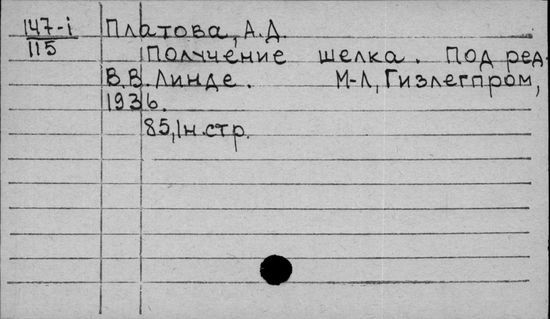 147-i Платова, А.Д.
115 Получение шелка. Под ред.
В.В. Линде. М-Л, Гизлегпром,
1936.
85, 1н.стр.